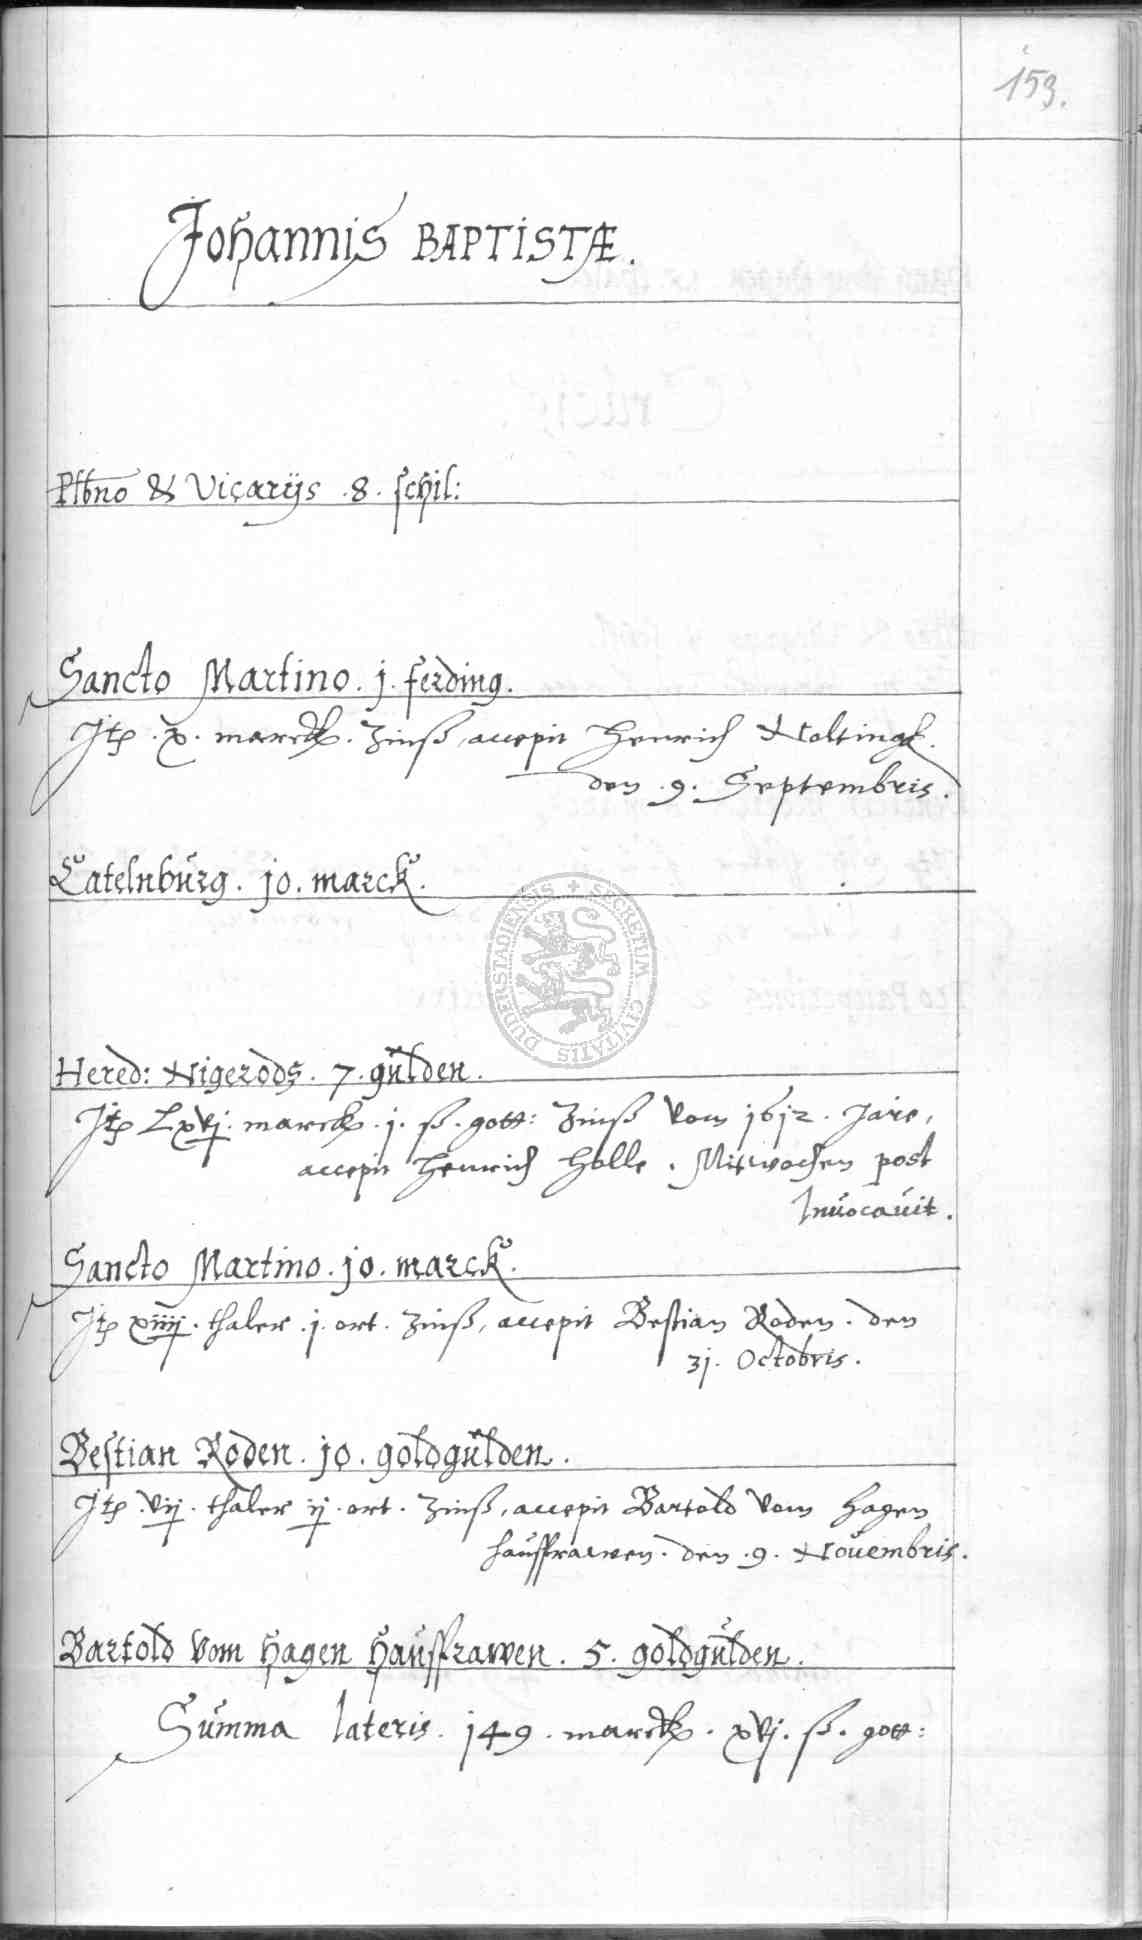 153.
Johannis BAPTISTÆ.
Plbno & Vicarijs .8. schil:
Sancto Martino. j. ferding.
Itp .x. marck. Zinß, accepit Henrich Noltingk.
den .9. Septembris.
Catelnbůrg. jo. marck.
DUDERSTADIENSIS + SECRETUM CIVITATIS
Hered: Nigerods. 7. gůlden.
Itp Lxvj. marck. j. ß. gott: Zinß vom 1612. Jare,
accepit Henrich Holle. Mitwochen post
Inůocauit.
Sancto Martino. jo. marck.
Itp xiiij. thaler. j. ort. Zinß, accepit Bestian Roden. den
3j. Octobris.
Bestian Roden. jo. goldgůlden.
Itp .vij. thaler ij. ort. Zinß, accepit Bartold vom Hagen
haůsfrawen. den .9. Nouembris.
Bartold vom Hagen Haůsfrawen. 5. goldgůlden.
Sůmma lateris. j49. marck. xvj. ß. gott: